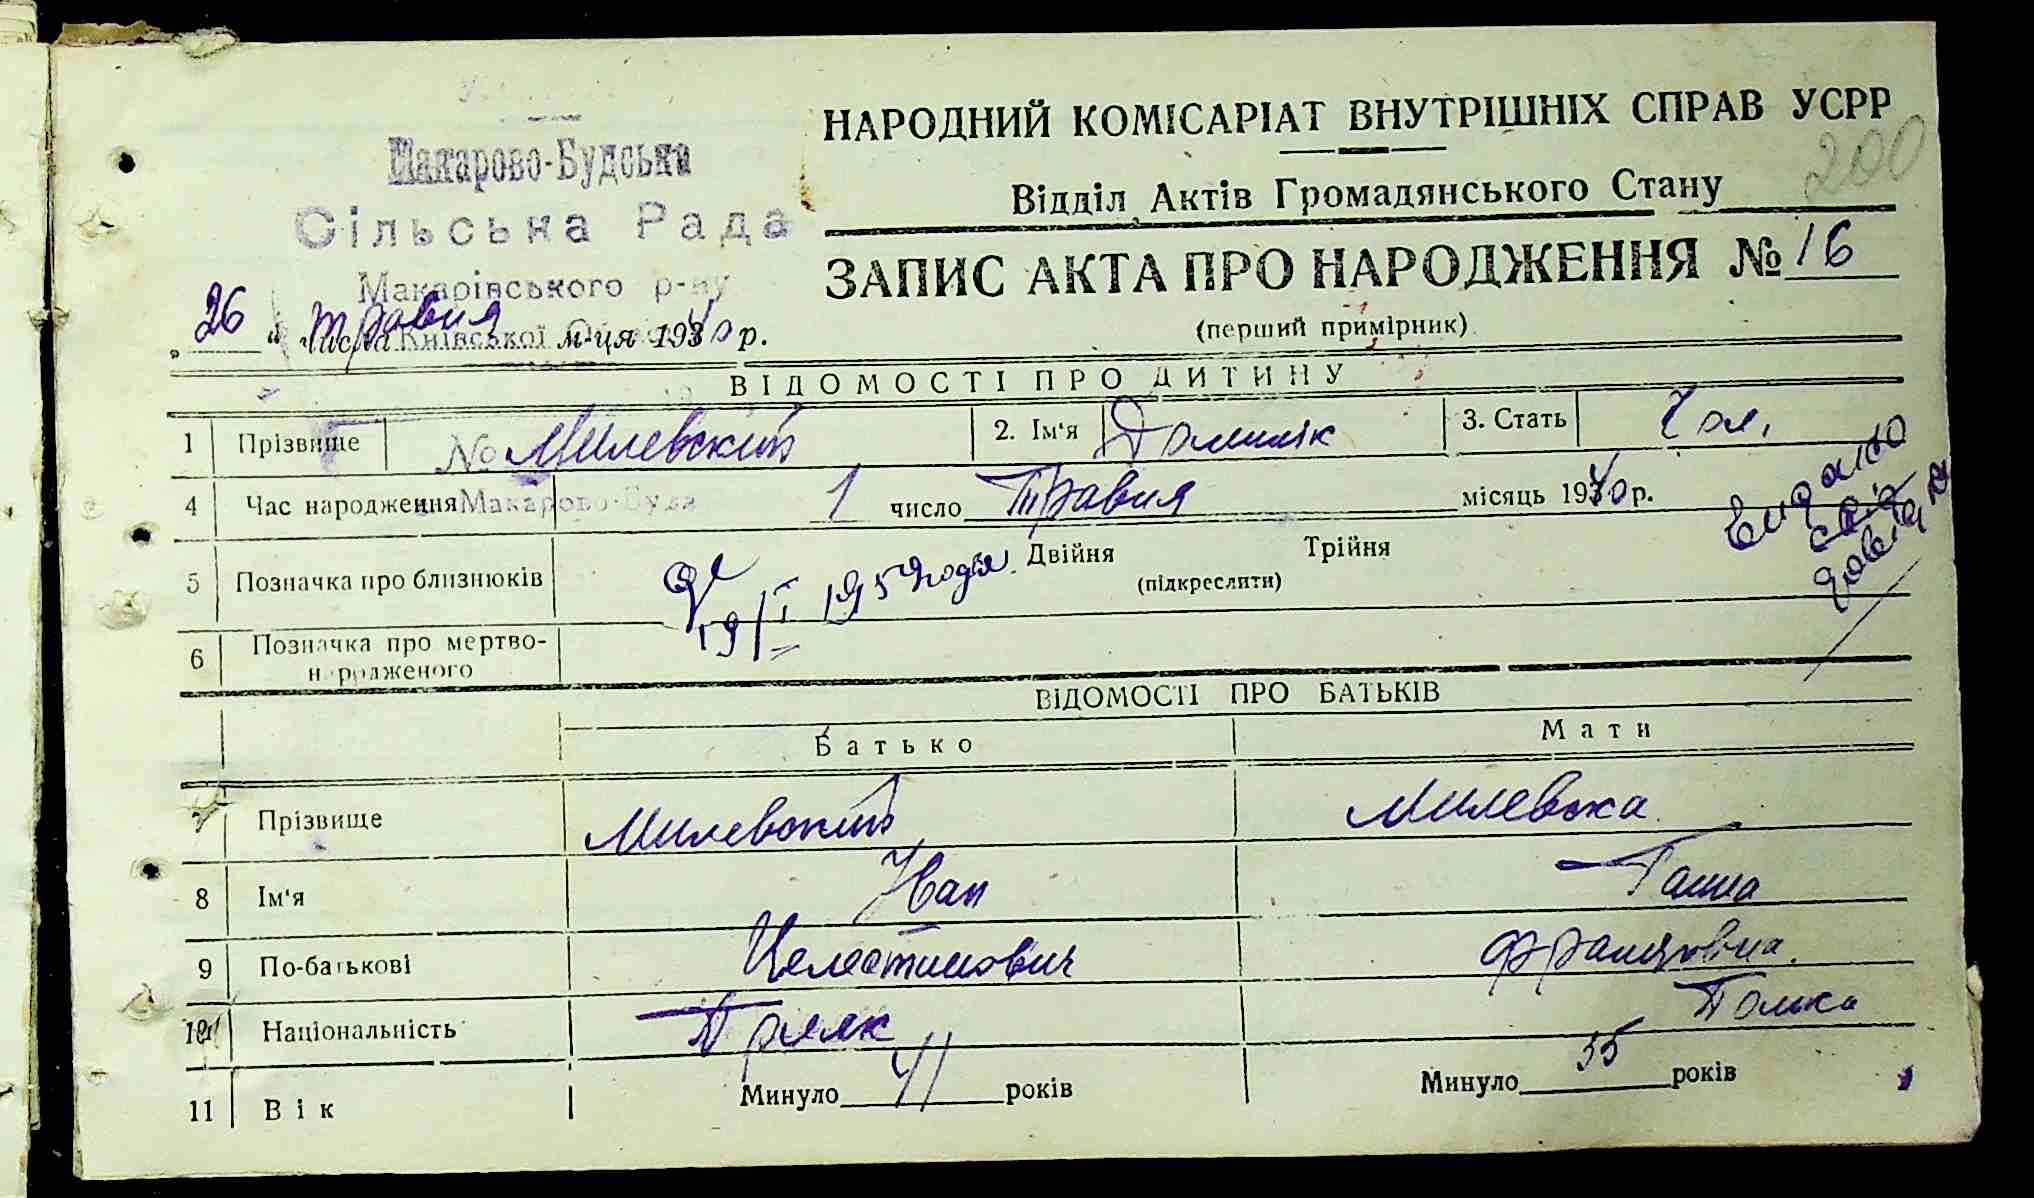 НАРОДНИЙ КОМІСАРІАТ ВНУТРІШНІХ СПРАВ УСРР
200
Відділ Актів Громадянського Стану
Макарово-Будська
Сільська Рада
Макарівського р-ну
Київської
ЗАПИС АКТА ПРО НАРОДЖЕННЯ № 16
(перший примірник)
„26“ травня числа м-ця 1940 р.
ВІДОМОСТІ ПРО ДИТИНУ
1 Прізвище № Милевский 2. Ім'я Домінік 3. Стать Чол.
4 Час народження Макарово-Буда 1 число Травня місяць 1940 р.
5 Позначка про близнюків Двійня Трійня
(підкреслити)
19/I 195
6 Позначка про мертво-
народженого
ВІДОМОСТІ ПРО БАТЬКІВ
Батько Мати
7 Прізвище Милевский Милевська
8 Ім'я Іван Ганна
9 По-батькові Целестинович Францовна.
10 Національність Поляк Полька
11 Вік Минуло 41 років Минуло 35 років